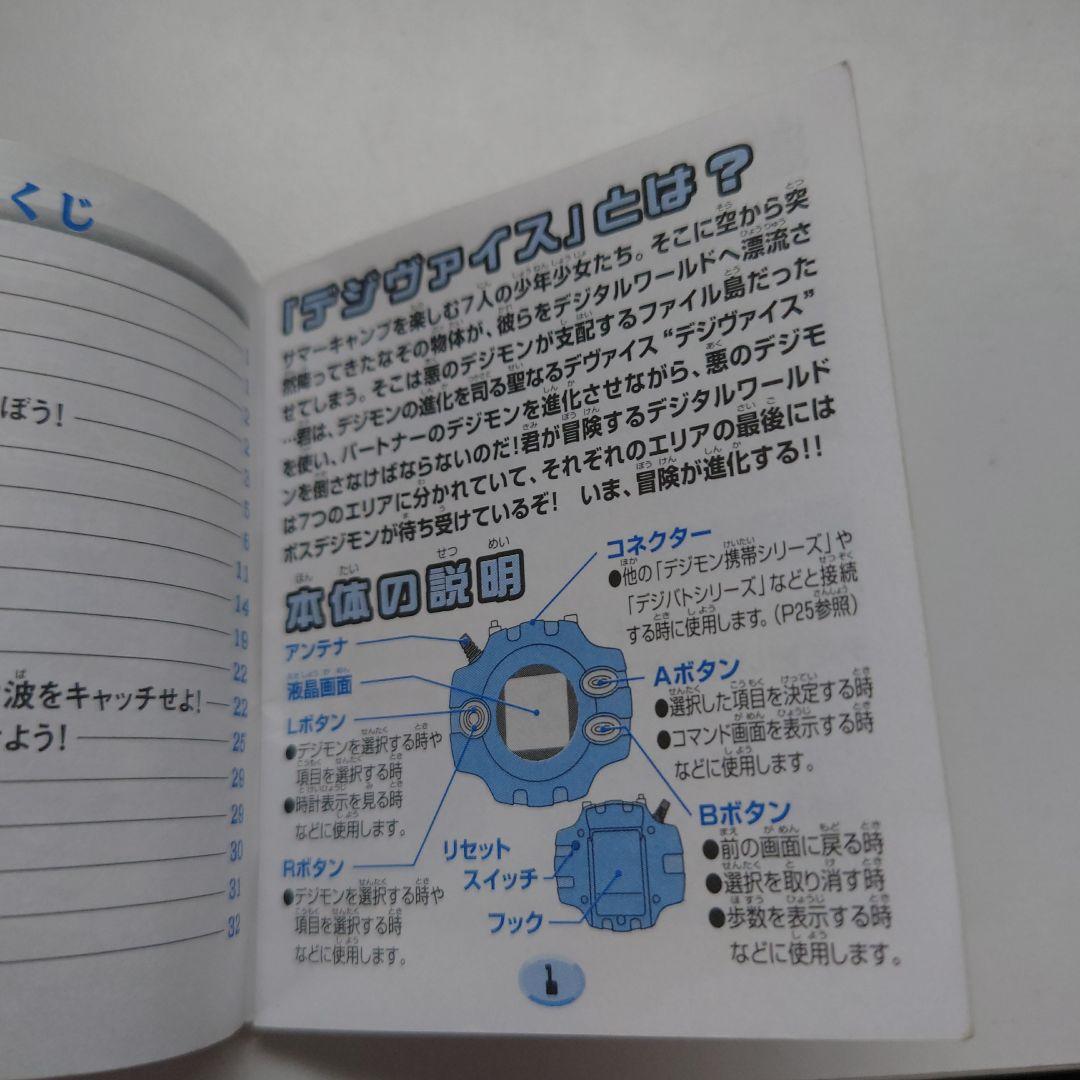 くじ
1
1
2
ぽう!
2
3
5
6
11
14
19
22
波をキャッチせよ! 22
よう! 25
29
29
30
31
32
「デジヴァイス」とは?
サマーキャンプを楽しむ7人の少年少女たち。そこに空から突
然降ってきたなぞの物体が、彼らをデジタルワールドへ漂流さ
せてしまう。そこは悪のデジモンが支配するファイル島だった
…君は、デジモンの進化を司る聖なるデヴァイス“デジヴァイス”
を使い、パートナーのデジモンを進化させながら、悪のデジモ
ンを倒さなけばならないのだ!君が冒険するデジタルワールド
は7つのエリアに分かれていて、それぞれのエリアの最後には
ボスデジモンが待ち受けているぞ! いま、冒険が進化する!!
本体の説明
コネクター
●他の「デジモン携帯シリーズ」や
「デジバトシリーズ」などと接続
する時に使用します。(P25参照)
アンテナ
液晶画面
Lボタン
●デジモンを選択する時や
項目を選択する時
●時計表示を見る時
などに使用します。
Rボタン
●デジモンを選択する時や
項目を選択する時
などに使用します。
Aボタン
●選択した項目を決定する時
●コマンド画面を表示する時
などに使用します。
Bボタン
●前の画面に戻る時
●選択を取り消す時
●歩数を表示する時
などに使用します。
リセット
スイッチ
フック
1